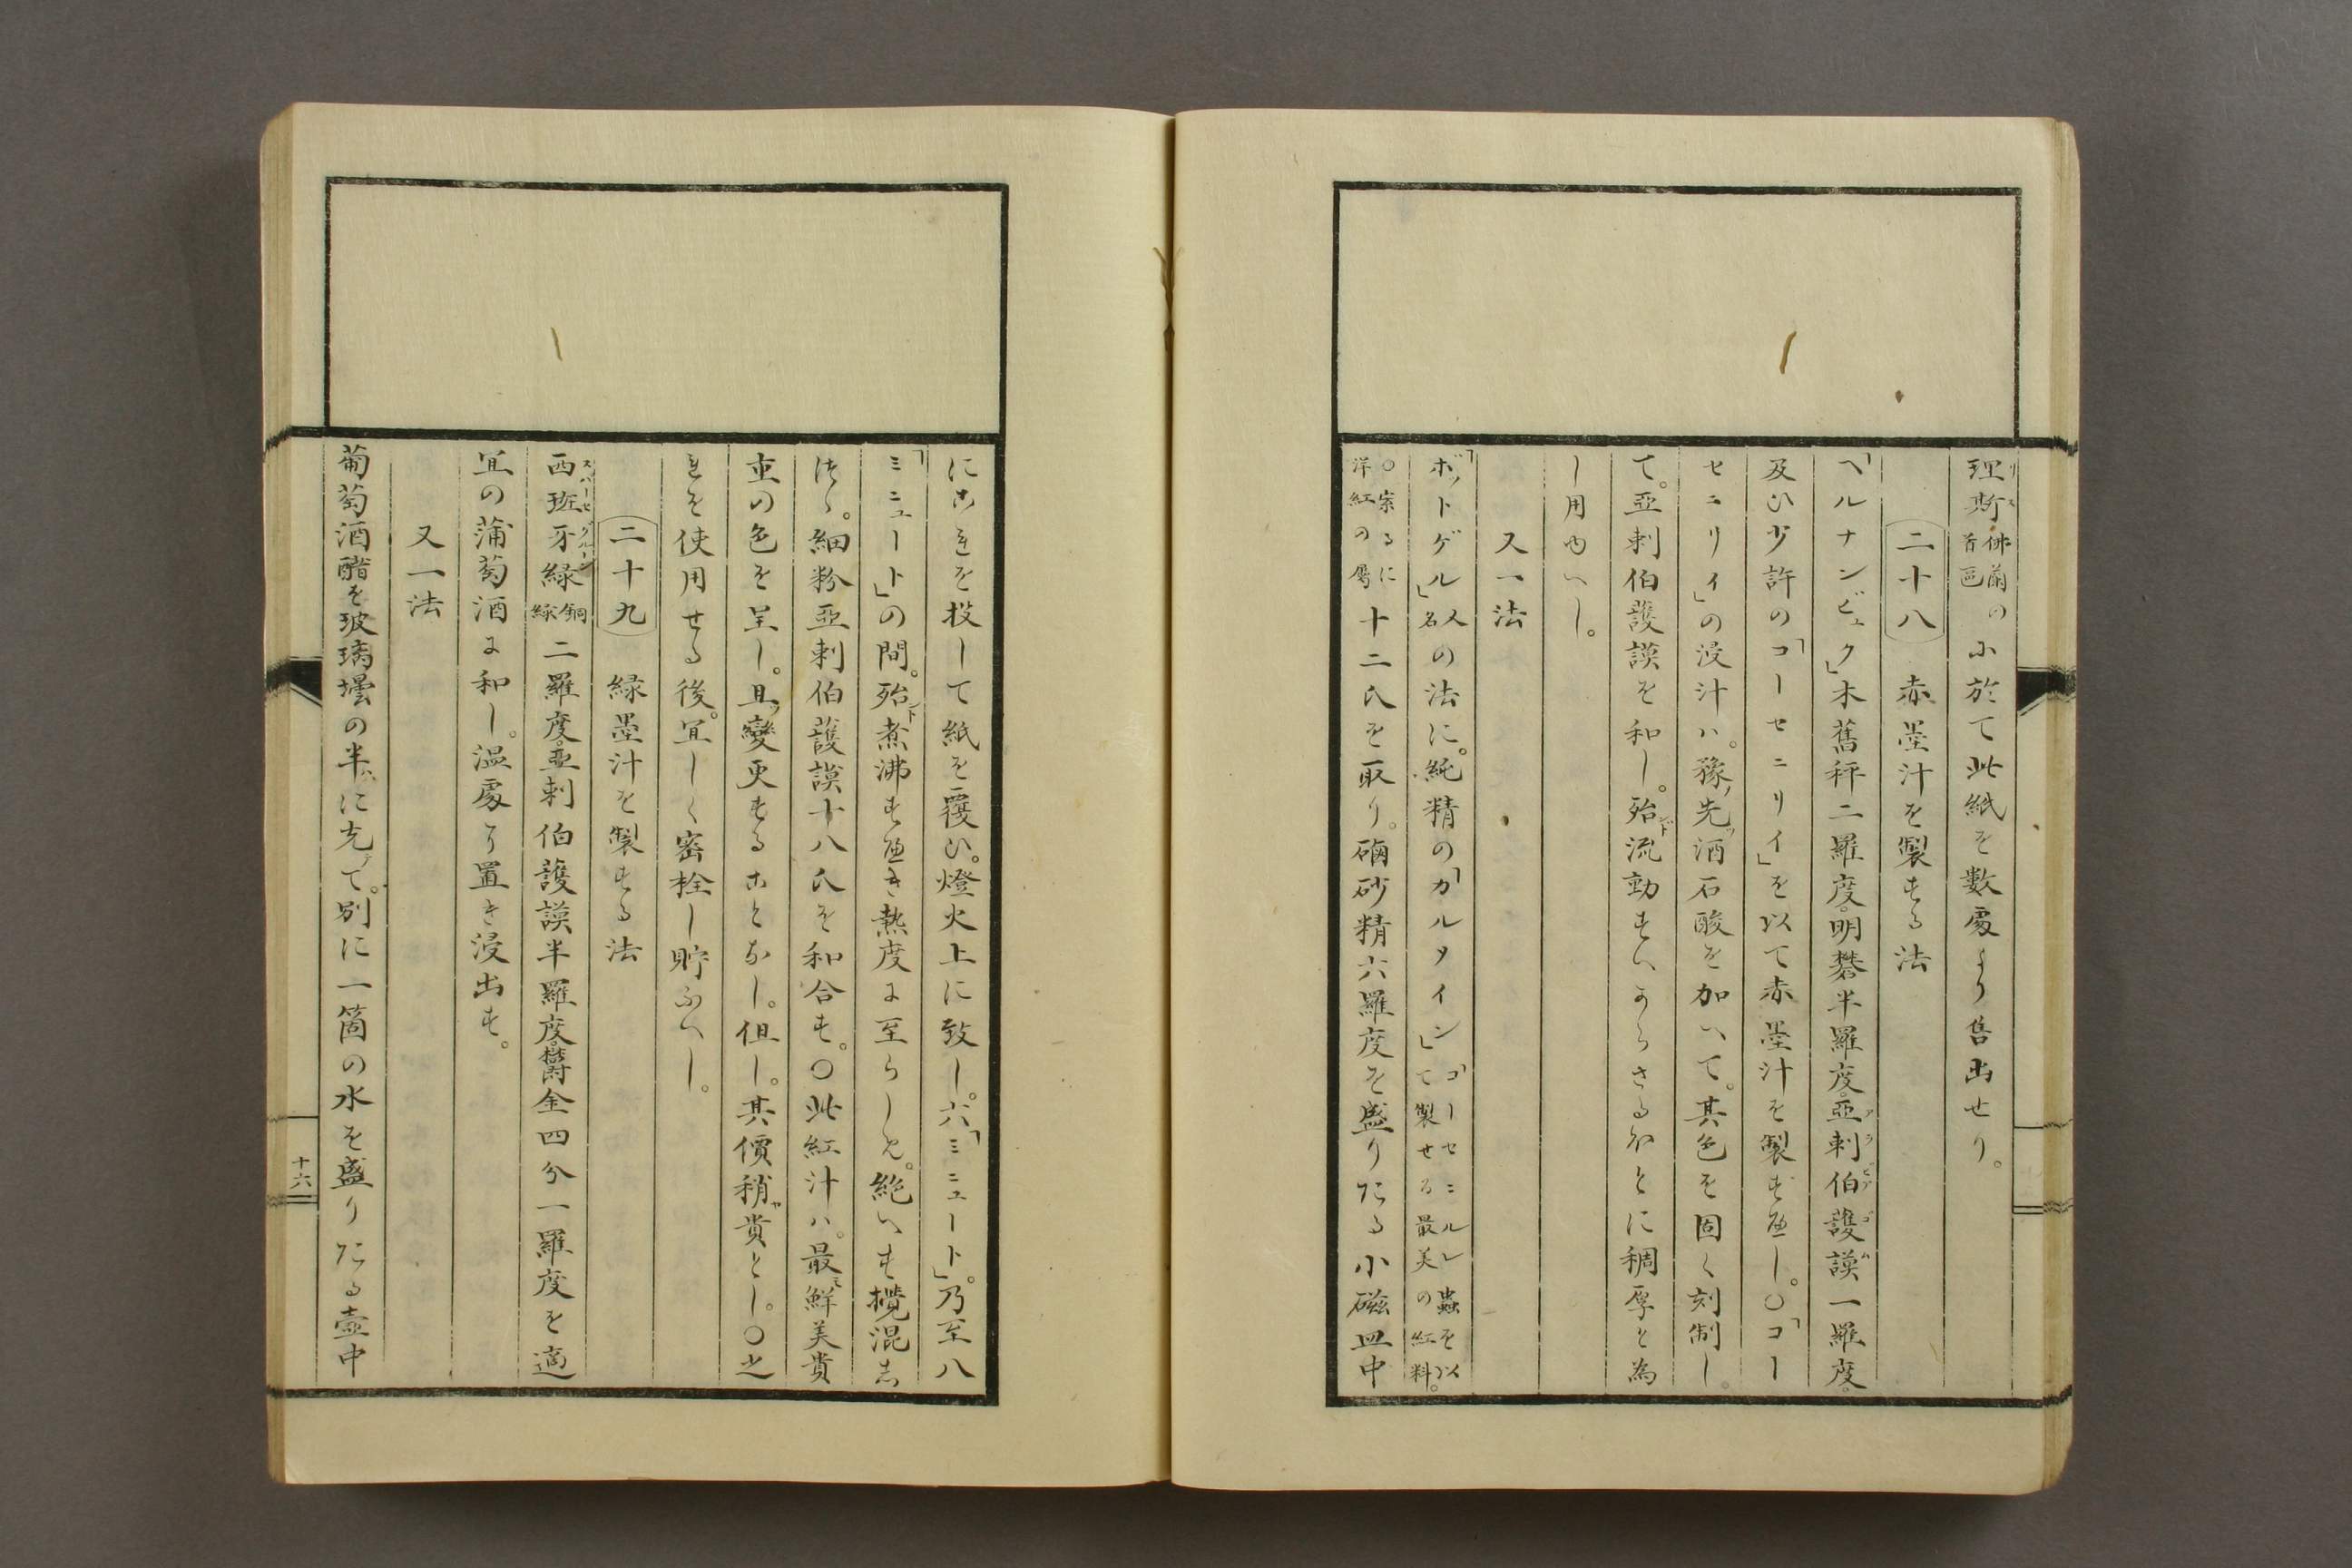 理斯佛蘭の首邑に於て此紙を數處より售出せり。
二十八 赤墨汁を製する法
「ヘルナンビュク」木舊秤二羅度。明礬半羅度。亞剌伯護謨一羅度。
及ひ少許の「コーセニリイ」を以て赤墨汁を製すべし。○「コー
セニリイ」の浸汁ハ。豫先酒石酸を加へて。其色を固く刻制し。
て。亞剌伯護謨を和し。殆流動すへからさるほとに稠厚と為
し用ゆへし。
又一法
「ボットゲル」人名の法に。純精の「カルメイン」「コーセニルレ蟲を以て製せる最美の紅料。
○案るに洋紅の屬十二氏を取り。磠砂精六羅度を盛りたる小磁皿中
にこれを投して紙を覆ひ。燈火上に致し。六「ミニュート」。乃至八
「ミニュート」の間。殆煮沸すべき熱度に至らしめ。絶へす攪混し
つゝ。細粉亞剌伯護謨十八氏を和合す。○此紅汁ハ。最鮮美貴
重の色を呈し。且變更することなし。但し。其價稍貴とし。○之
れを使用せる後。宜しく密栓し貯ふへし。
二十九 緑墨汁を製する法
西班牙緑銅緑二羅度。亞剌伯護謨半羅度。欝金四分一羅度を適
宜の蒲萄酒に和し。温處に置き浸出す。
又一法
葡萄酒醋を玻璃壜の半に充て。別に一箇の水を盛りたる壺中
十六